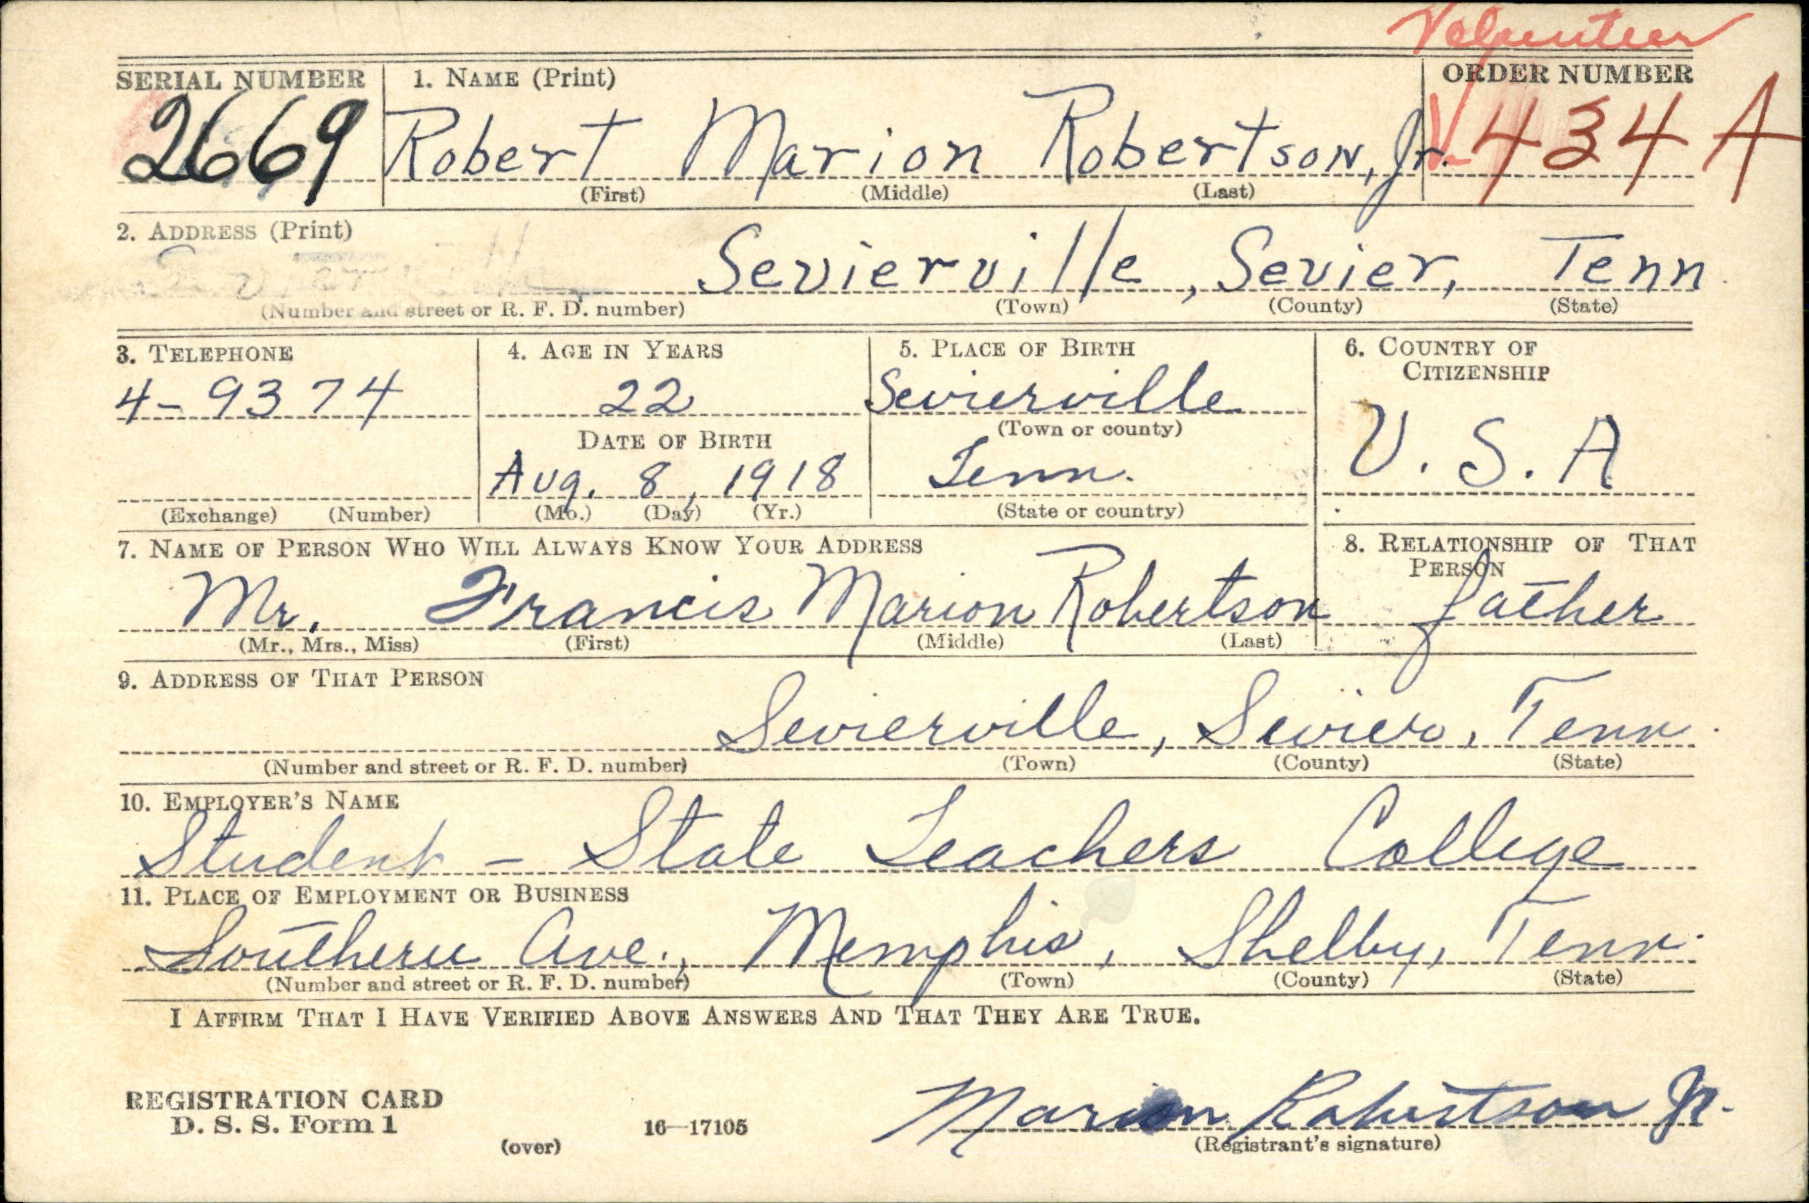 Volunteer
SERIAL NUMBER 1. NAME (Print) ORDER NUMBER
2669 Robert Marion Robertson, Jr. V 434 A
(First) (Middle) (Last)
2. ADDRESS (Print)
Sevierville, Sevier, Tenn
(Number and street or R. F. D. number) (Town) (County) (State)
3. TELEPHONE 4. AGE IN YEARS 5. PLACE OF BIRTH 6. COUNTRY OF CITIZENSHIP
4-9374 22 Sevierville U.S.A
DATE OF BIRTH (Town or county)
Aug. 8, 1918 Tenn.
(Exchange) (Number) (Mo.) (Day) (Yr.) (State or country)
7. NAME OF PERSON WHO WILL ALWAYS KNOW YOUR ADDRESS 8. RELATIONSHIP OF THAT PERSON
Mr. Francis Marion Robertson father
(Mr., Mrs., Miss) (First) (Middle) (Last)
9. ADDRESS OF THAT PERSON
Sevierville, Sevier, Tenn.
(Number and street or R. F. D. number) (Town) (County) (State)
10. EMPLOYER'S NAME
Student - State Teachers College
11. PLACE OF EMPLOYMENT OR BUSINESS
Southern Ave., Memphis, Shelby, Tenn.
(Number and street or R. F. D. number) (Town) (County) (State)
I AFFIRM THAT I HAVE VERIFIED ABOVE ANSWERS AND THAT THEY ARE TRUE.
REGISTRATION CARD
D. S. S. Form 1
(over) 16—17105
Marion Robertson Jr.
(Registrant's signature)